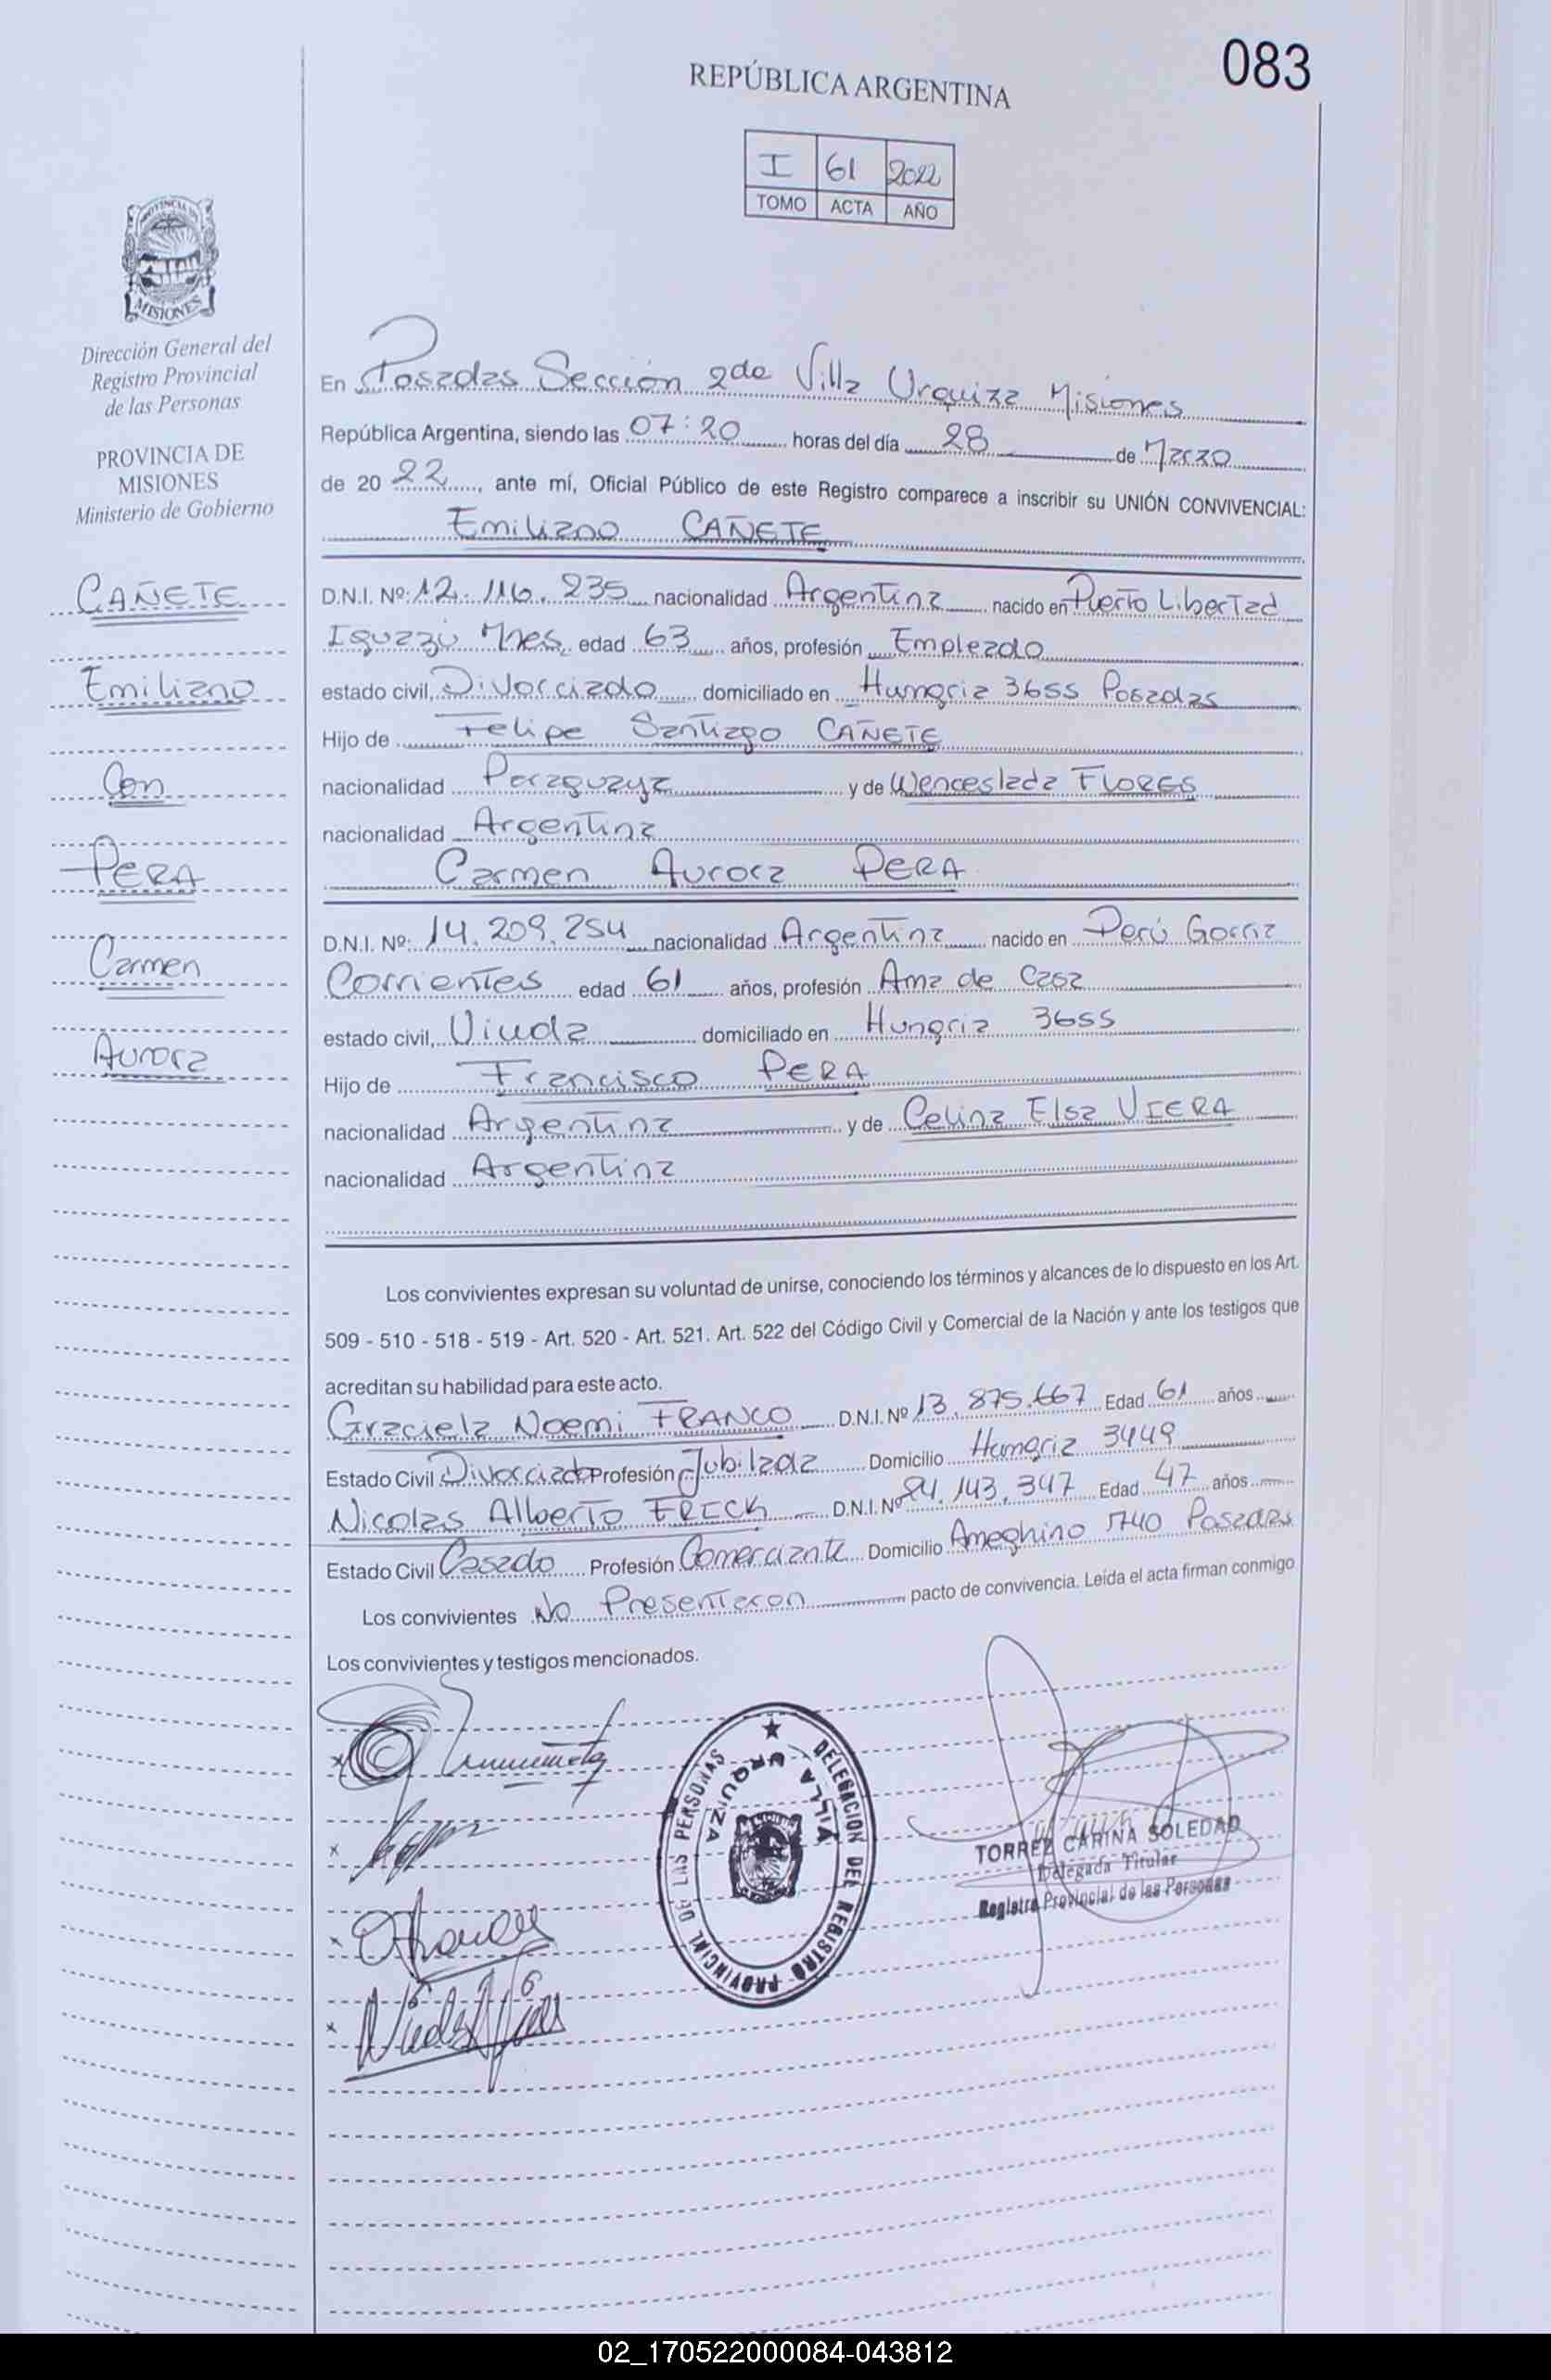 083
REPÚBLICA ARGENTINA
I 61 2022
TOMO ACTA AÑO
PROVINCIA DE
MISIONES
Dirección General del
Registro Provincial
de las Personas
PROVINCIA DE
MISIONES
Ministerio de Gobierno
CAÑETE
Emiliano
Con
PERA
Carmen
Aurora
En Posadas Sección 2da Villa Urquiza Misiones
República Argentina, siendo las 07:20 horas del día 28 de Marzo
de 20 22, ante mí, Oficial Público de este Registro comparece a inscribir su UNIÓN CONVIVENCIAL:
Emiliano CAÑETE
D.N.I. Nº: 12.116.235 nacionalidad Argentina nacido en Puerto Libertad
Iguazú Mnes, edad 63 años, profesión Empleado
estado civil, Divorciado domiciliado en Hungria 3655 Posadas
Hijo de Felipe Santiago CAÑETE
nacionalidad Paraguaya y de Wenceslada FLORES
nacionalidad Argentina
Carmen Aurora PERA
D.N.I. Nº: 14.209.254 nacionalidad Argentina nacido en Perú Gorria
Corrientes edad 61 años, profesión Ama de casa
estado civil, Viuda domiciliado en Hungria 3655
Hijo de Francisco PERA
nacionalidad Argentina y de Celina Elsa VIERA
nacionalidad Argentina
Los convivientes expresan su voluntad de unirse, conociendo los términos y alcances de lo dispuesto en los Art.
509 - 510 - 518 - 519 - Art. 520 - Art. 521. Art. 522 del Código Civil y Comercial de la Nación y ante los testigos que
acreditan su habilidad para este acto.
Graciela Noemi FRANCO D.N.I. Nº 13.875.667 Edad 61 años
Estado Civil Divorciada Profesión Jubilada Domicilio Hungria 3449
Nicolas Alberto FRICK D.N.I. Nº 24.143.347 Edad 47 años
Estado Civil Casado Profesión Comerciante Domicilio Ameghino 5740 Posadas
Los convivientes No Presentaron pacto de convivencia. Leída el acta firman conmigo
Los convivientes y testigos mencionados.
DELEGACION DEL REGISTRO PROVINCIAL DE LAS PERSONAS
VILLA URQUIZA
TORREZ CARINA SOLEDAD
Delegada Titular
Registro Provincial de las Personas
02_170522000084-043812